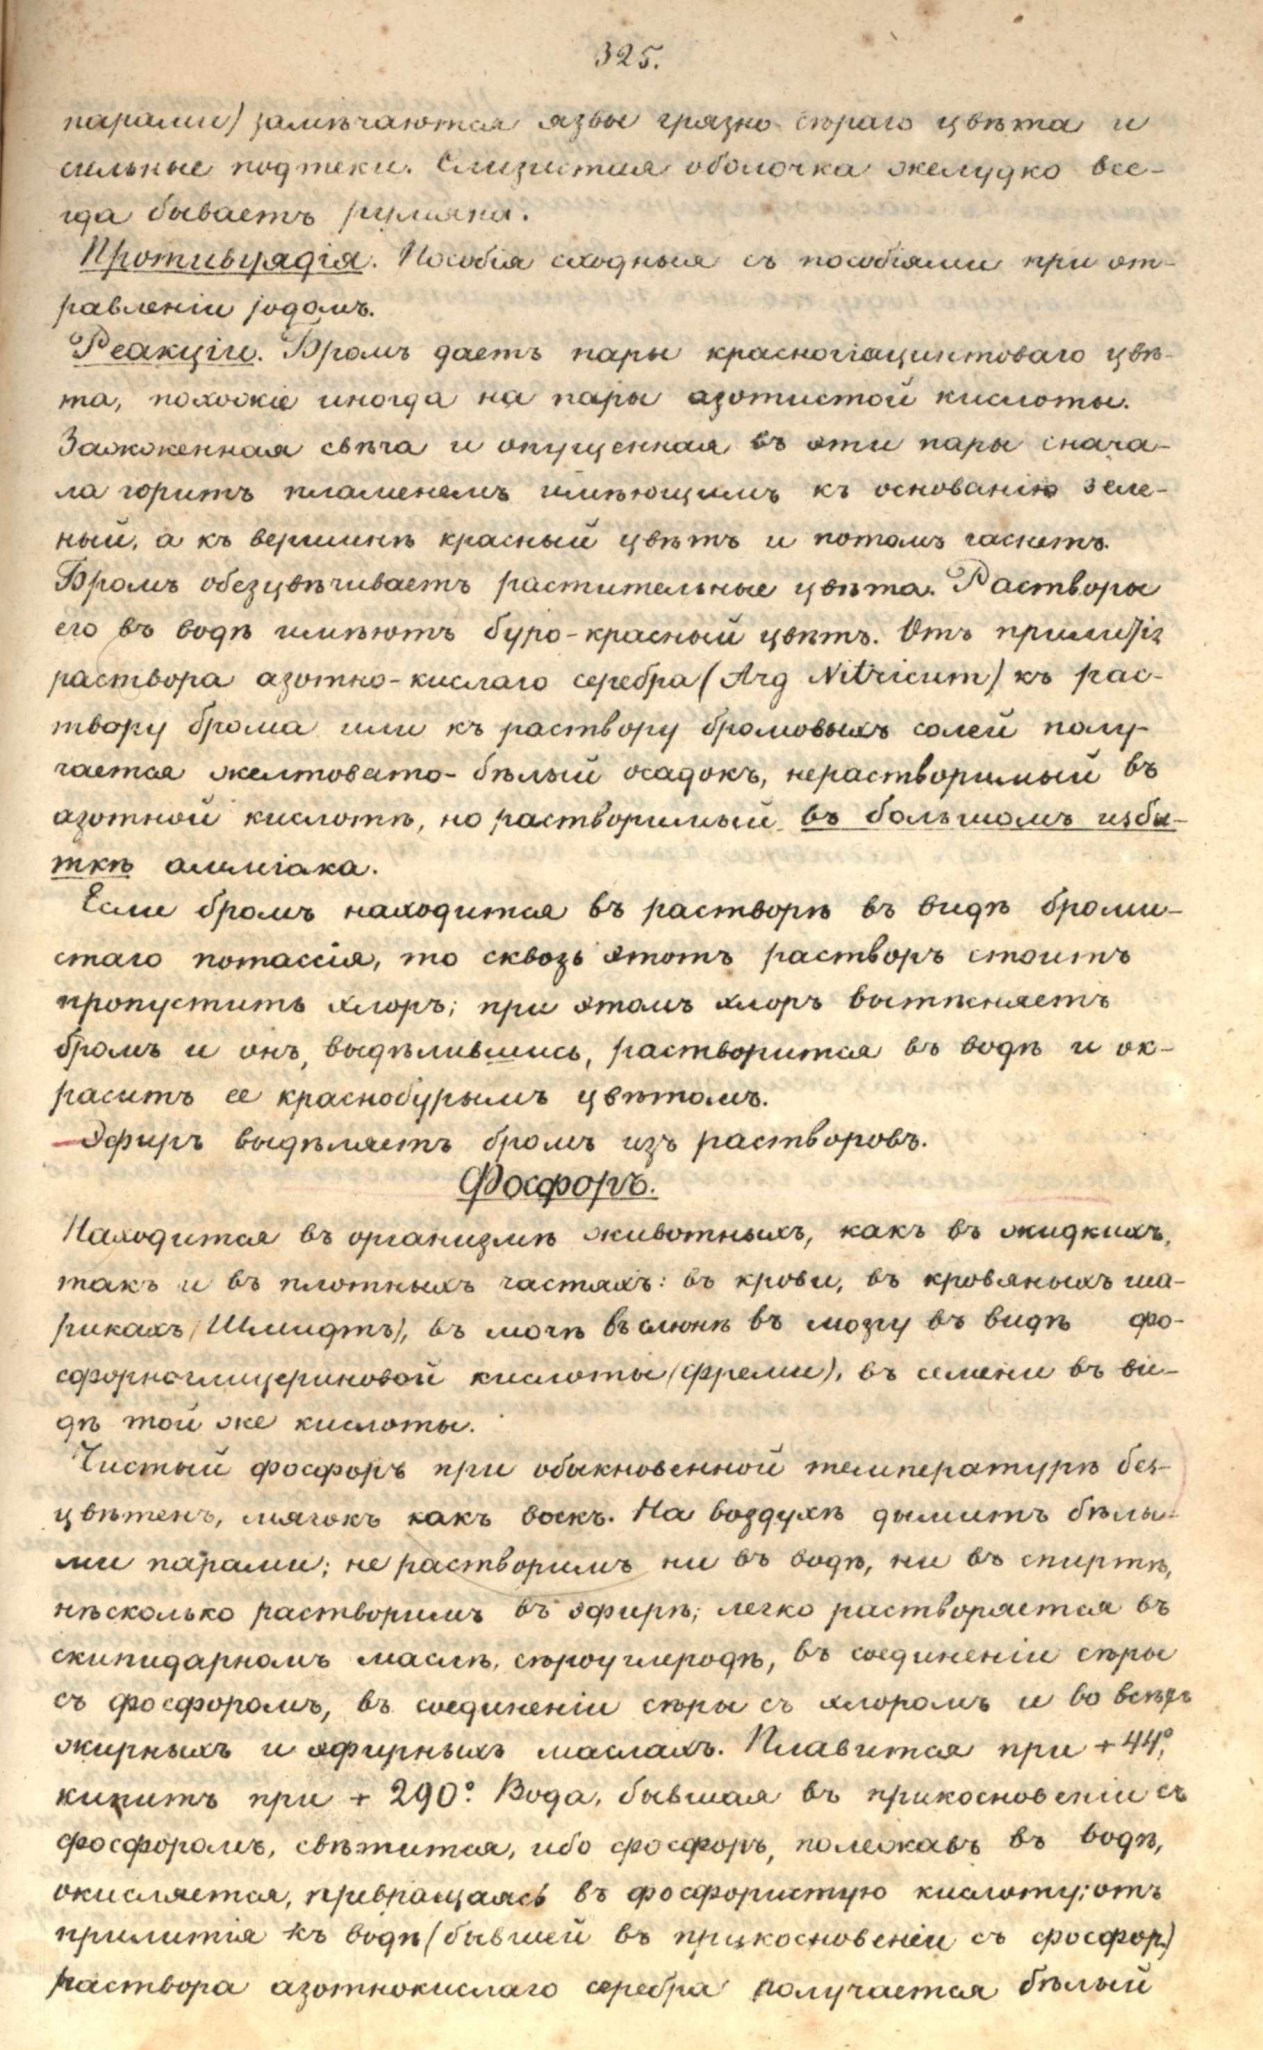 325.
парами) замѣчаются язвы грязно-сѣраго цвѣта и
сильные подтеки. Слизистая оболочка желудка все-
гда бываетъ румяна.
Противуядія. Пособія сходныя съ пособіями при от-
равленіи іодомъ.
Реакціи. Бромъ даетъ пары красногіацинтоваго цвѣ-
та, похожіе иногда на пары азотистой кислоты.
Зажженная свѣча и опущенная въ эти пары снача-
ла горитъ пламенемъ имѣющимъ къ основанію зеле-
ный, а къ вершинѣ красный цвѣтъ и потомъ гаснетъ.
Бромъ обезцвѣчиваетъ растительные цвѣта. Растворы
его въ водѣ имѣютъ буро-красный цвѣтъ. Отъ прилитія
раствора азотно-кислаго серебра (Arg Nitricum) къ рас-
твору брома или къ раствору бромовыхъ солей полу-
чается желтовато-бѣлый осадокъ, нерастворимый въ
азотной кислотѣ, но растворимый въ большомъ избы-
ткѣ амміака.
Если бромъ находится въ растворѣ въ видѣ броми-
стаго потассія, то сквозь этотъ растворъ стоитъ
пропустить хлоръ; при этомъ хлоръ вытѣсняетъ
бромъ и онъ, выдѣлившись, растворится въ водѣ и ок-
раситъ ее краснобурымъ цвѣтомъ.
Эфиръ выдѣляетъ бромъ изъ растворовъ.
Фосфоръ.
Находится въ организмѣ животныхъ, какъ въ жидкихъ,
такъ и въ плотныхъ частяхъ: въ крови, въ кровяныхъ ша-
рикахъ (Шмидтъ), въ мочѣ въ слюнѣ въ мозгу въ видѣ фо-
сфорноглицериновой кислоты (Фреми), въ семени въ ви-
дѣ той же кислоты.
Чистый фосфоръ при обыкновенной температурѣ без-
цвѣтенъ, мягокъ какъ воскъ. На воздухѣ дымитъ бѣлы-
ми парами; не растворимъ ни въ водѣ, ни въ спиртѣ,
нѣсколько растворимъ въ эфирѣ; легко растворяется въ
скипидарномъ маслѣ, сѣроуглеродѣ, въ соединеніи сѣры
съ фосфоромъ, въ соединеніи сѣры съ хлоромъ и во всѣхъ
жирныхъ и эфирныхъ маслахъ. Плавится при +44°,
кипитъ при + 290°. Вода, бывшая въ прикосновеніи съ
фосфоромъ, свѣтится, ибо фосфоръ, полежавъ въ водѣ,
окисляется, превращаясь въ фосфористую кислоту; отъ
прилитія къ водѣ (бывшей въ прикосновеніи съ фосфор.)
раствора азотнокислаго серебра получается бѣлый